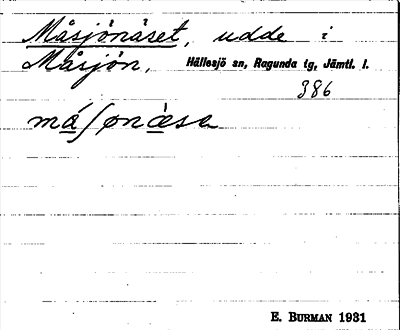 Måsjönäset, udde i
Måsjön, Hällesjö sn, Ragunda tg, Jämtl. l.
386
E. BURMAN 1931